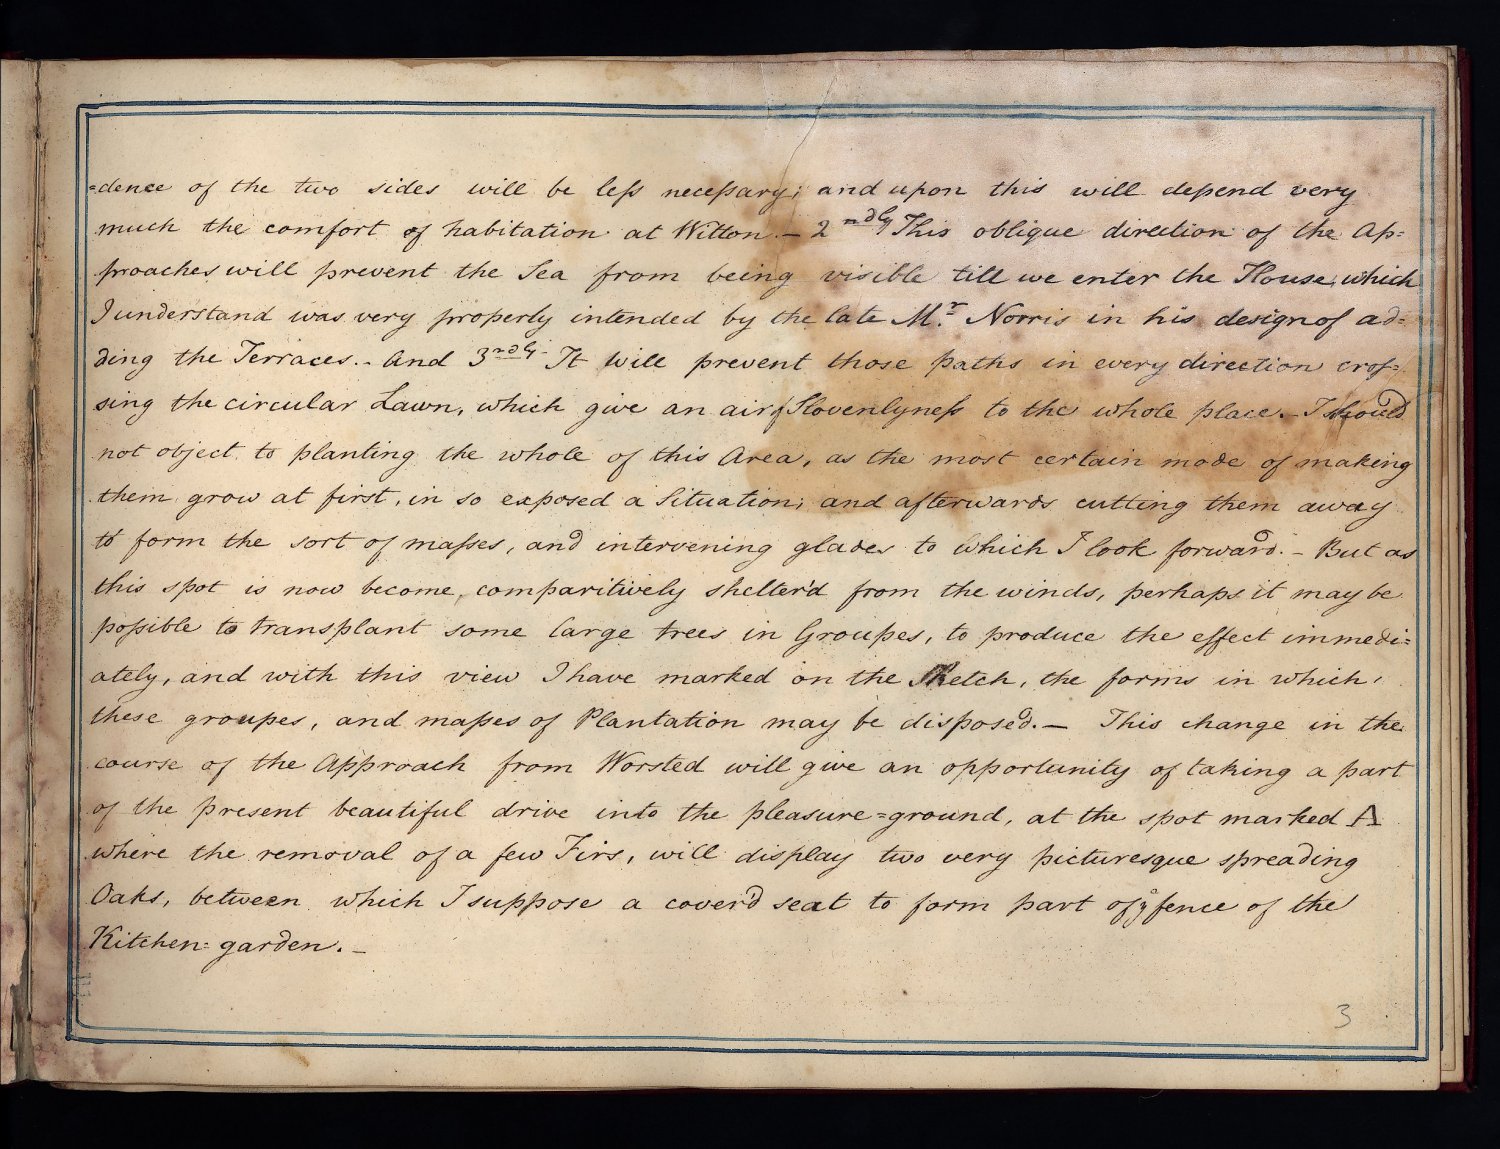 =dence of the two sides will be leſs neceſsary; and upon this will depend very
much the comfort of habitation at Witton – 2ndly This oblique direction of the Ap=
proaches will prevent the Sea from being visible till we enter the House, which
I understand was very properly intended by the late Mr. Norris in his design of ad=
ding the Terraces. – And 3rdly It will prevent those paths in every direction croſ=
sing the circular Lawn, which give an air of Slovenlyneſs to the whole place. – I should
not object to planting the whole of this Area, as the most certain mode of making
them grow at first, in so exposed a Situation; and afterwards cutting them away
to form the sort of maſses, and intervening glades to which I look forward. – But as
this spot is now become, comparitively shelter'd from the winds, perhaps it may be
poſsible to transplant some large trees in Groupes, to produce the effect immedi=
ately, and with this view I have marked on the Sketch, the forms in which,
these groupes, and maſses of Plantation may be disposed. — This change in the
course of the Approach from Worsted will give an opportunity of taking a part
of the present beautiful drive into the pleasure=ground, at the spot marked A
where the removal of a few Firs, will display two very picturesque spreading
Oaks, between which I suppose a cover'd seat to form part of ye fence of the
Kitchen=garden. –
3